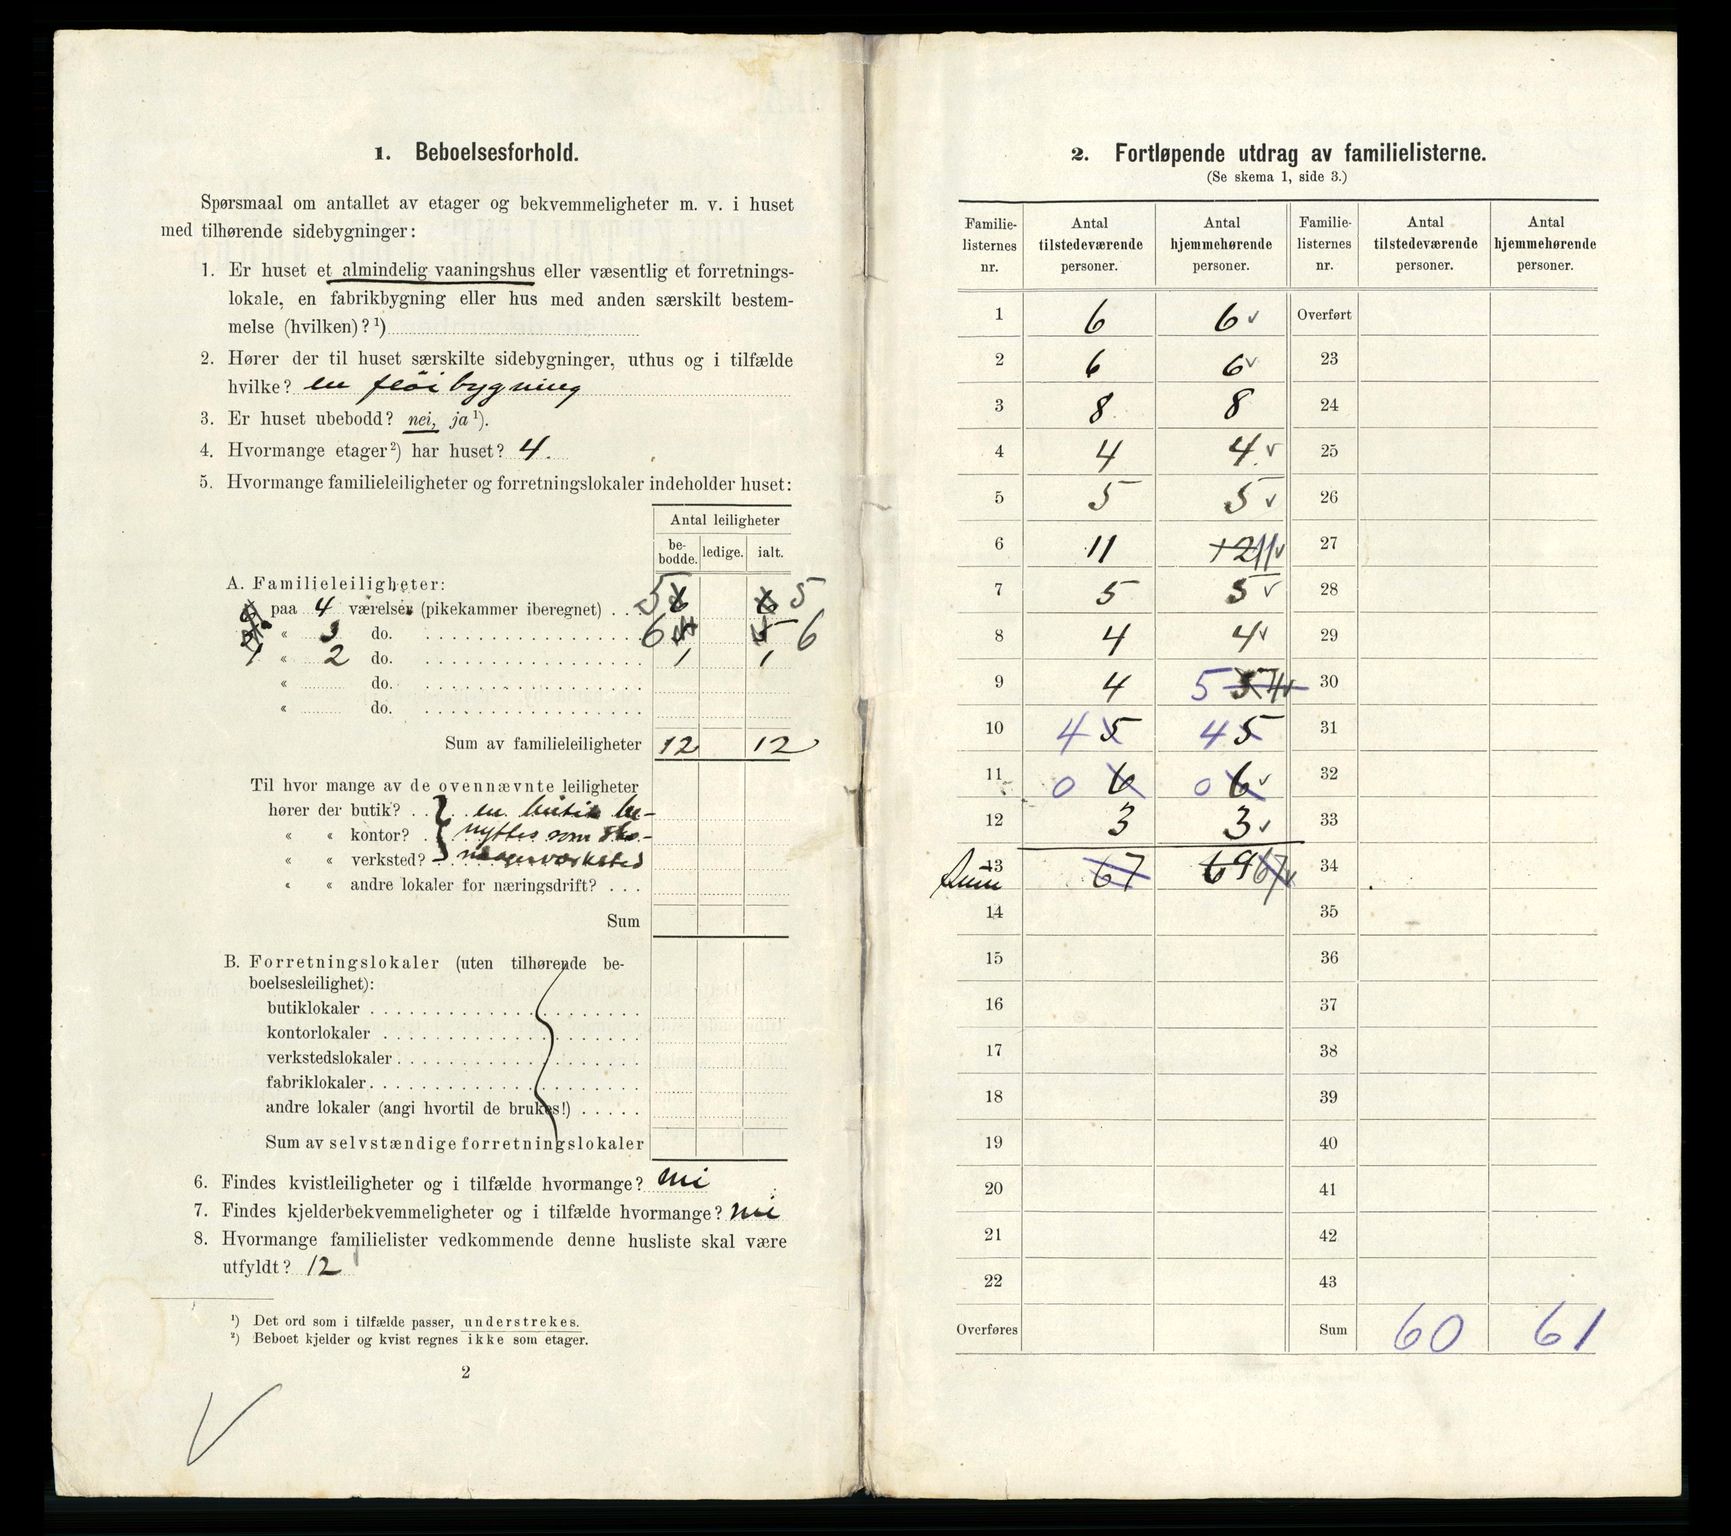 1. Beboelsesforhold.
Spørsmaal om antallet av etager og bekvemmeligheter m. v. i huset
med tilhørende sidebygninger:
1. Er huset et almindelig vaaningshus eller væsentlig et forretnings-
lokale, en fabrikbygning eller hus med anden særskilt bestem-
melse (hvilken)? ¹)
2. Hører der til huset særskilte sidebygninger, uthus og i tilfælde
hvilke? en fløi bygning
3. Er huset ubebodd? nei, ja ¹).
4. Hvormange etager ²) har huset? 4.
5. Hvormange familieleiligheter og forretningslokaler indeholder huset:
Antal leiligheter
be-bodde. ledige. ialt.
A. Familieleiligheter:
paa 4 værelser (pikekammer iberegnet) . . . 5 5
« 3 do. 6 6
1 « 2 do. 1 1
« do.
« do.
Sum av familieleiligheter 12 12
Til hvor mange av de ovennævnte leiligheter
hører der butik? . . en butik be-
« « kontor? . nyttes som sko-
« « verksted? magerværksted
« « andre lokaler for næringsdrift? . . .
Sum
B. Forretningslokaler (uten tilhørende be-
boelsesleilighet):
butiklokaler
kontorlokaler
verkstedslokaler
fabriklokaler
andre lokaler (angi hvortil de brukes!)
Sum av selvstændige forretningslokaler
6. Findes kvistleiligheter og i tilfælde hvormange? nei
7. Findes kjelderbekvemmeligheter og i tilfælde hvormange? nei
8. Hvormange familielister vedkommende denne husliste skal være
utfyldt? 12
¹) Det ord som i tilfælde passer, understrekes.
²) Beboet kjelder og kvist regnes ikke som etager.
2
2. Fortløpende utdrag av familielisterne.
(Se skema 1, side 3.)
Familie-listernes nr. Antal tilstedeværende personer. Antal hjemmehørende personer. Familie-listernes nr. Antal tilstedeværende personer. Antal hjemmehørende personer.
1 6 6 Overført
2 6 6 23
3 8 8 24
4 4 4 25
5 5 5 26
6 11 12 11 27
7 5 5 28
8 4 4 29
9 4 5 5 4 30
10 4 5 4 5 31
11 0 6 0 6 32
12 3 3 33
13 Sum 67 69 67 34
14 35
15 36
16 37
17 38
18 39
19 40
20 41
21 42
22 43
Overføres Sum 60 61